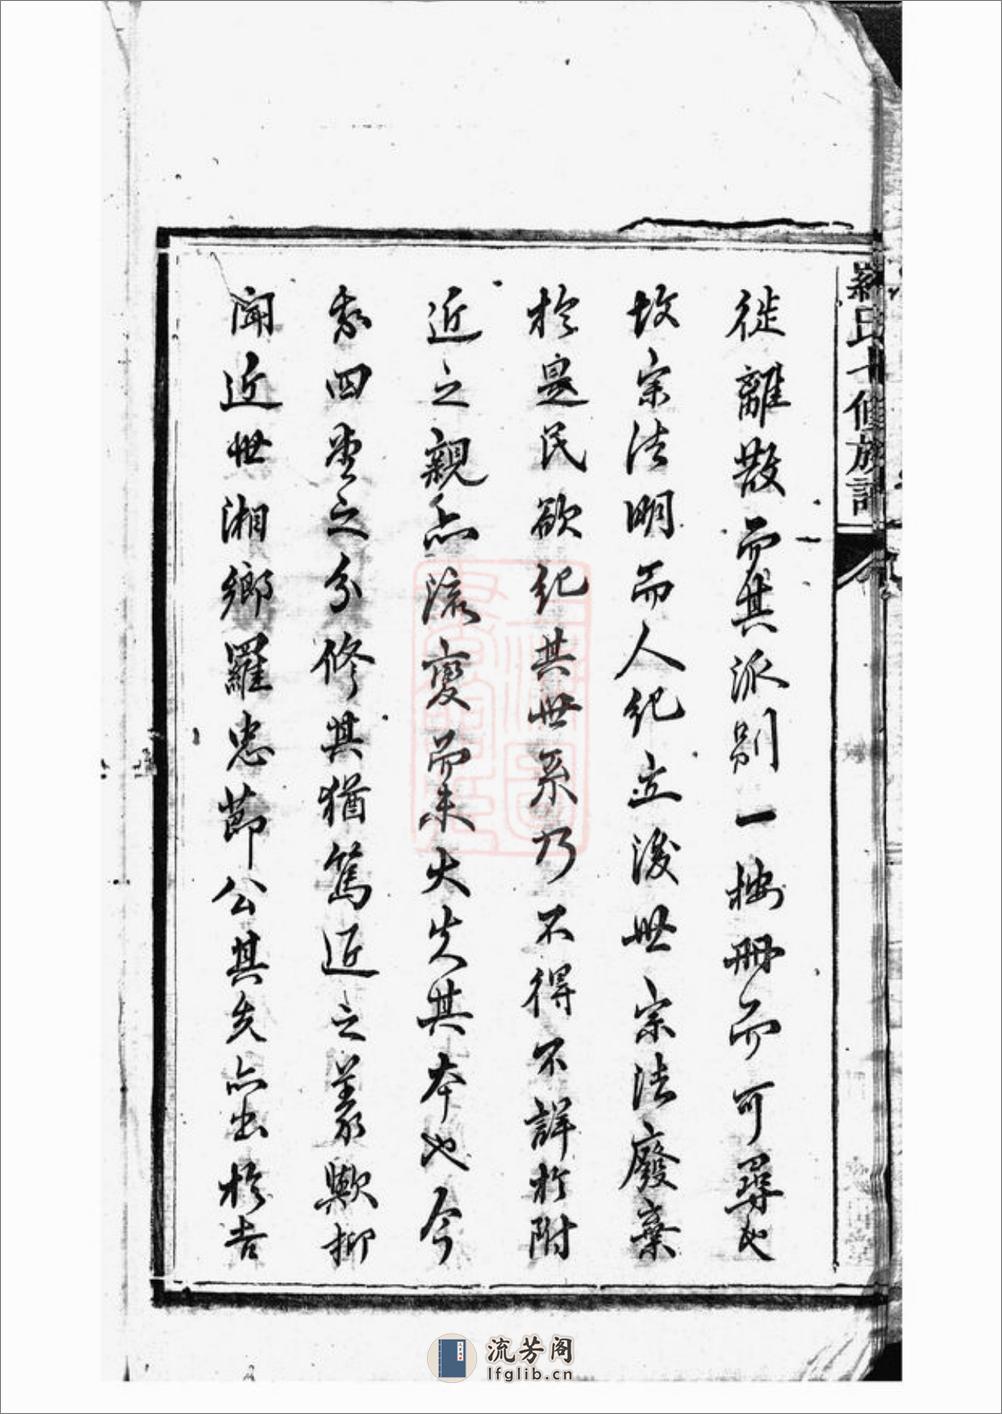 羅氏十修族譜
徙離散而其派別一按冊而可尋也
故宗法明而人紀立後世宗法廢棄
於是民欲紀其世系乃不得不詳於附
近之親亦流變而未大失其本也今
我四堂之分修其猶篤近之義歟抑
聞近世湘鄉羅忠節公其先亦出於吉
流芳阁
lfglib.cn